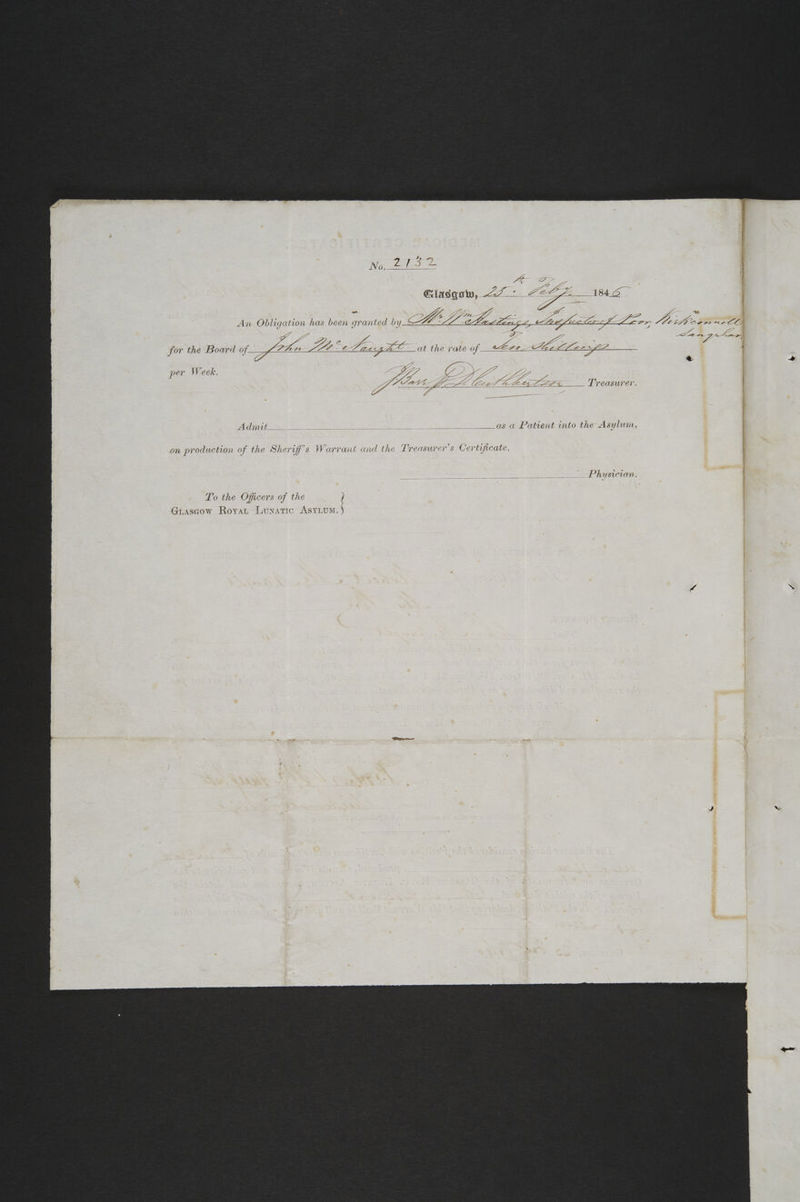 No. 2132
Glasgow, 25th Feby. 1846
An Obligation has been granted by Mr Wm Hastings, Inspector of Poor, Kirkconnell
Sanquhar
for the Board of John Mc Naught at the rate of Ten Shillings
per Week.
J Barr p D Cuthbertson Treasurer.
Admit as a Patient into the Asylum,
on production of the Sheriff's Warrant and the Treasurer's Certificate.
Physician.
To the Officers of the
Glasgow Royal Lunatic Asylum.